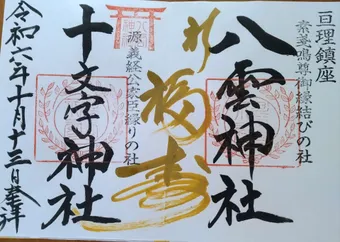 亘理鎮座
素戔嗚尊御縁結びの社
八雲神社
福寿
源義経公家臣縁りの社
十文字神社
令和六年十月十三日奉拝